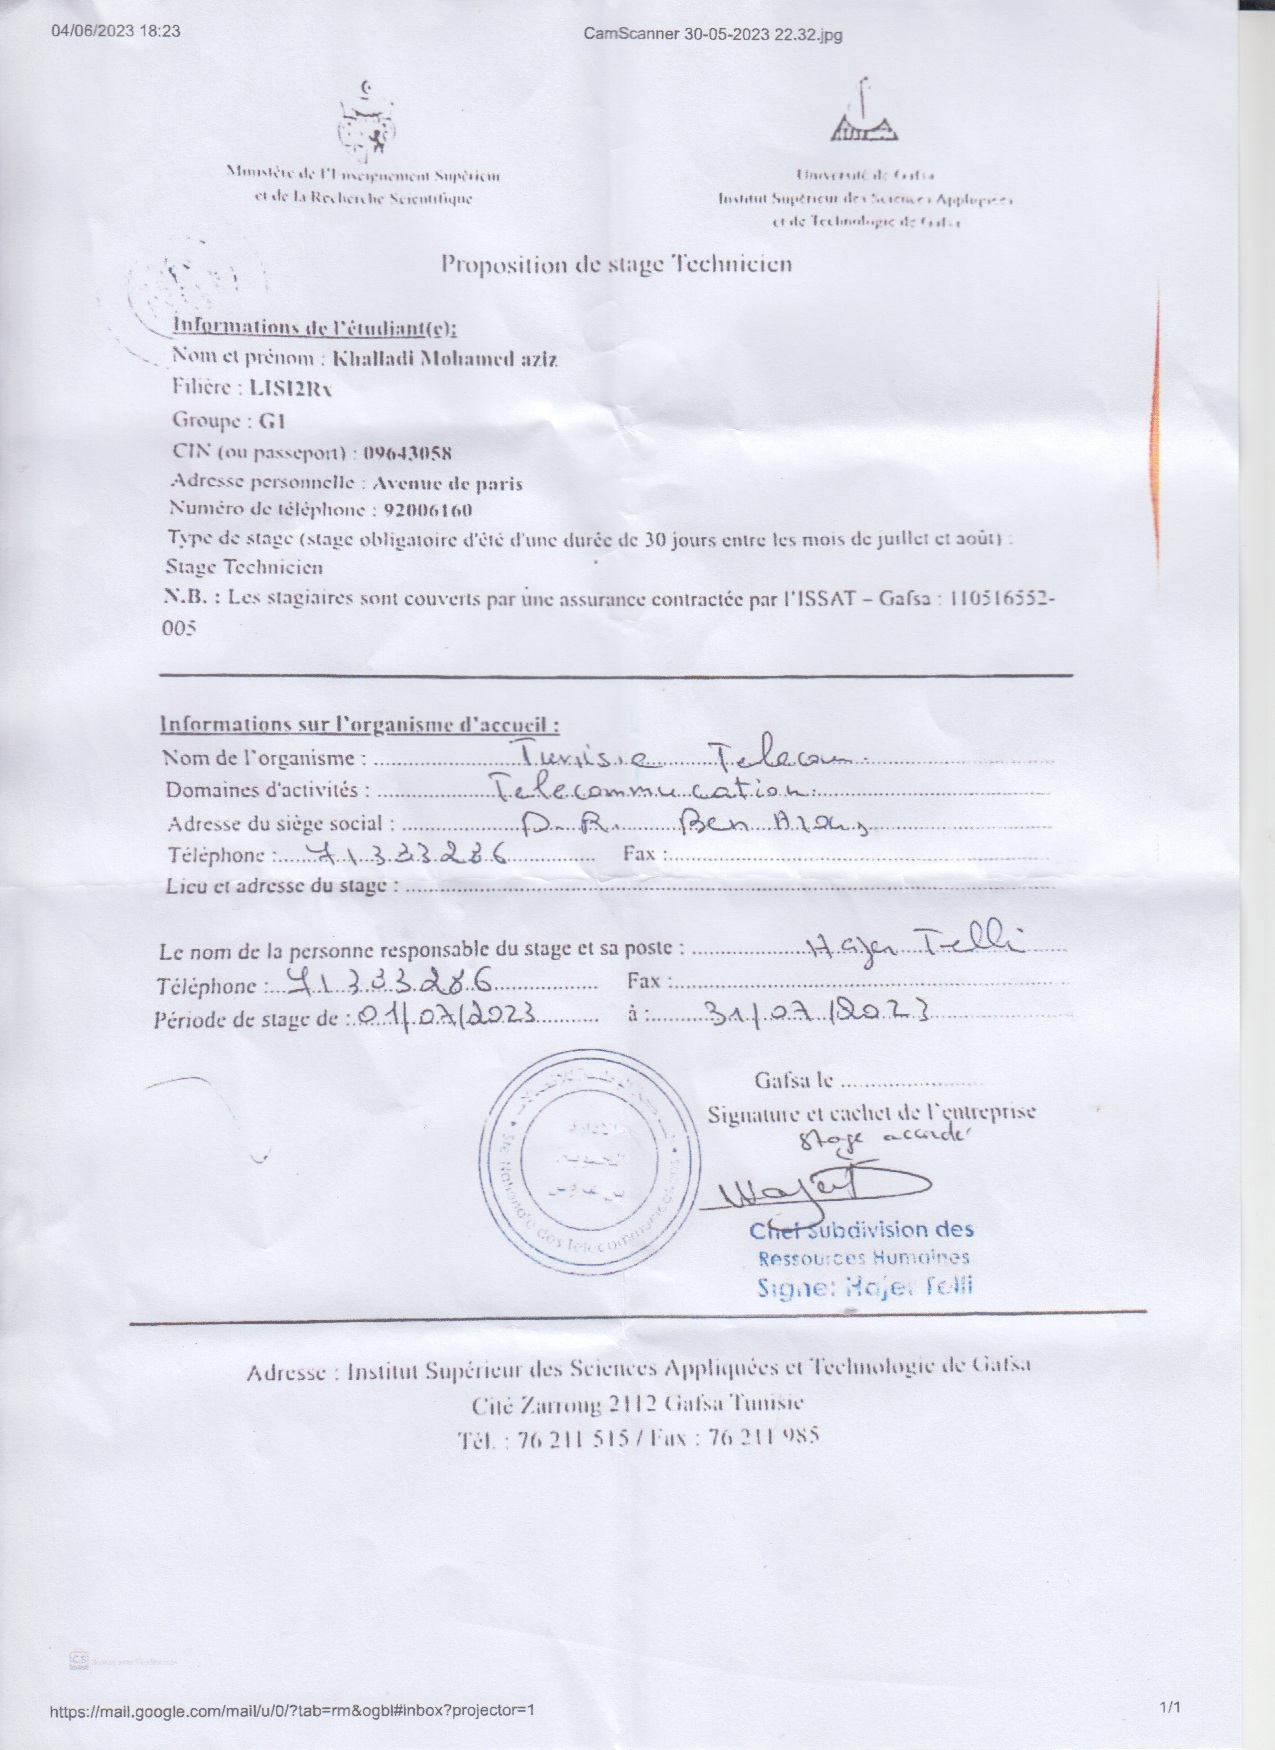 04/06/2023 18:23
CamScanner 30-05-2023 22.32.jpg
Ministère de l'Enseignement Supérieur
et de la Recherche Scientifique
Université de Gafsa
Institut Supérieur des Sciences Appliquées
et de Technologie de Gafsa
Proposition de stage Technicien
Informations de l'étudiant(e):
Nom et prénom : Khalladi Mohamed aziz
Filière : LISI2Rx
Groupe : G1
CIN (ou passeport) : 09643058
Adresse personnelle : Avenue de paris
Numéro de téléphone : 92006160
Type de stage (stage obligatoire d'été d'une durée de 30 jours entre les mois de juillet et août) :
Stage Technicien
N.B. : Les stagiaires sont couverts par une assurance contractée par l'ISSAT – Gafsa : 110516552-
005
Informations sur l'organisme d'accueil :
Nom de l'organisme : Tunisie Telecom
Domaines d'activités : Telecommucation
Adresse du siège social : D.R. Ben Arous
Téléphone : 71333286 Fax :
Lieu et adresse du stage :
Le nom de la personne responsable du stage et sa poste : Hajer Telli
Téléphone : 71333286 Fax :
Période de stage de : 01/07/2023 à : 31/07/2023
Gafsa le
Signature et cachet de l'entreprise
Stage accordé
Chef Subdivision des
Ressources Humaines
Signe: Hajer Telli
Ste Nationale des Telecommunications
Adresse : Institut Supérieur des Sciences Appliquées et Technologie de Gafsa
Cité Zarroug 2112 Gafsa Tunisie
Tél. : 76 211 515 / Fax : 76 211 985
CS
https://mail.google.com/mail/u/0/?tab=rm&ogbl#inbox?projector=1
1/1